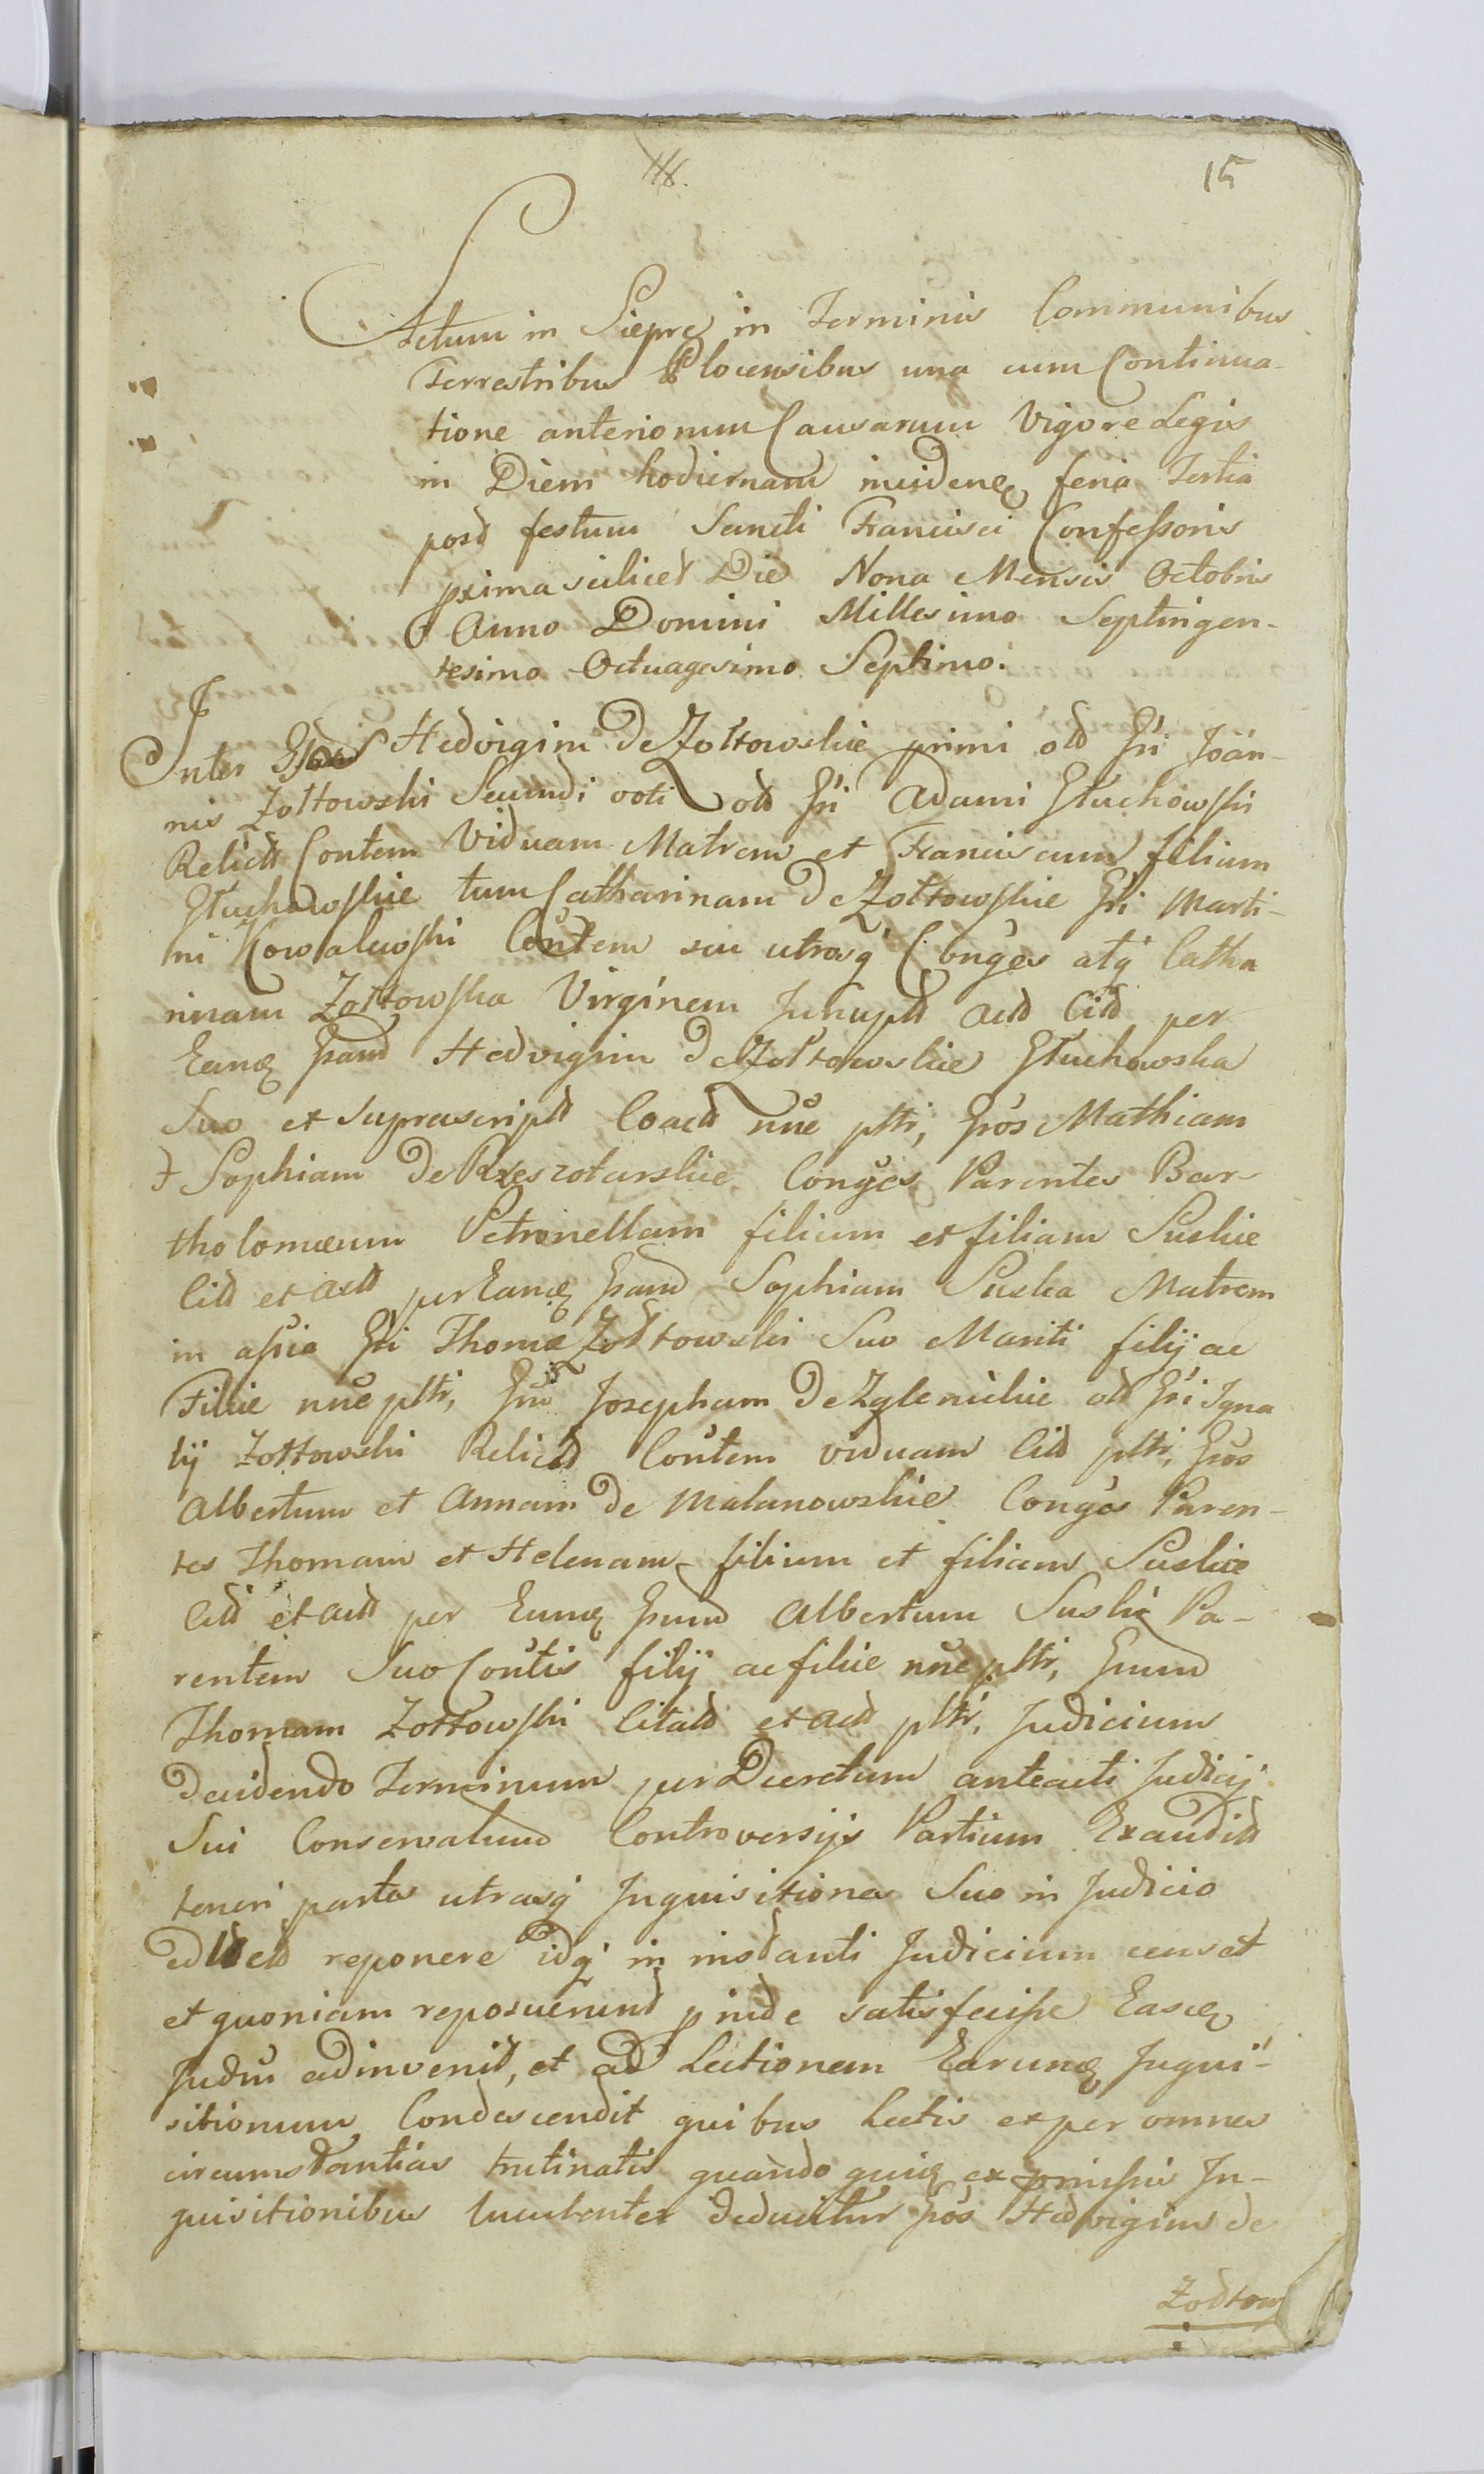 15
Actum in Sieprc in Terminis Communibus
Terrestribus Plocensibus una cum Continua-
tione anteriorum Causarum Vigore Legis
in Diem hodiernam incidenq feria Tertia
post festum Sancti Francisci Confessoris
pxima scilicet Die Nona Mensis Octobris
Anno Domini Millesimo Septingen-
tesimo Octuagesimo Septimo.
Inter Hedvigim de Zołtowskie primi old Gsi Joan-
nis Zołtowski Secundi voti old Gsi Adami Głuchowski
Relict Contem Viduam Matrem et Franciscum filium
Głuchowskie tum Catharinam de Zołtowskie Gsi Marti-
ni Kowalewski Contem sui utrosq Conges atq Catha
rinam Zołtowska Virginem Junupt Actt Citt per
Eanq Gsam Hedvigim de Zołtowskie Głuchowska
Suo et suprascriptt Coactt nne pltr, Gsos Mathiam
t Sophiam de Rzeszotarskie Conges Parentes Bar-
tholomæum Petronellam filium et filiam Suskie
Citt et actt per Eanq Gsam Sophiam Suska Matrem
in assia Gsi Thomæ Zołtowski Suo Mariti filij ac
Filiæ nne pltr, Gsm Josepham de Zglenickie old Gsi Igna
tij Zołtowski Relictt Contem viduam Citt pltr, Gsos
Albertum et Annam de Malanowskie Conges Paren-
tes Thomam et Helenam filium et filiam Suskie
Citt et actt per Eunq Gsum Albertum Suski Pa-
rentem Suo Contis filij ac filiæ nne pltr, Gsum
Thomam Zołtowski Citatt et actt pltr, Judicium
Decidendo Terminum per Decretum anteacti Judicij
Sui Conservatum Controversijs Partium Exauditt
teneri partes utrasq Inquisitiones Suo in Judicio
reponere idq in instanti Judicium censet
et quoniam reposuerunt pinde satisfecisse Easq
Judm adinvenit, et ad Lectionem Earunq Inqui-
sitionum Condescendit quibus Lectis et per omnes
circumstantias trutinatis quando quiq ex pmissis In-
quisitionibus luculenter deducitur Gsos Hedvigim de
Zołtow